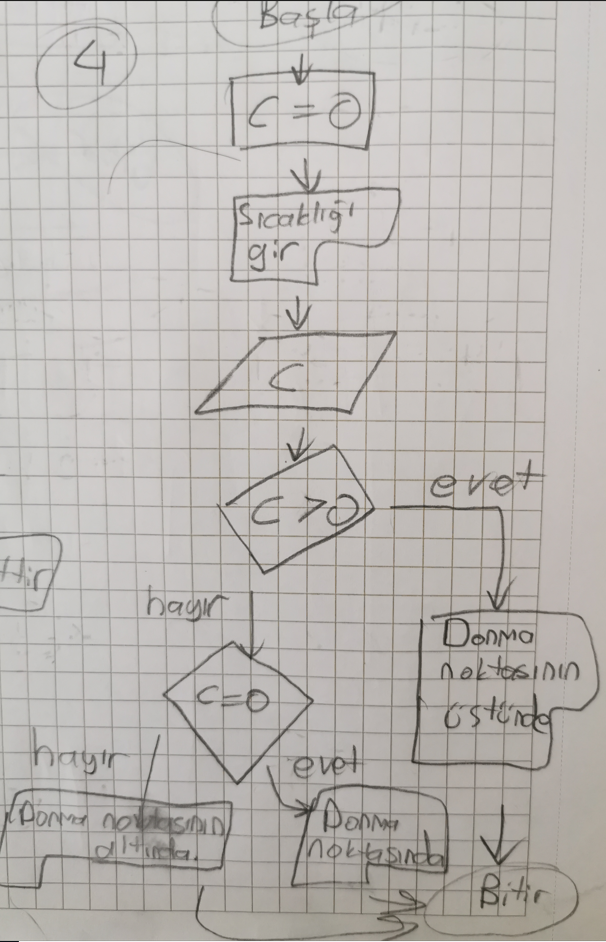 Başla
4
C = 0
Sıcaklığı
gir
C
C > 0
evet
ttir
hayır
Donma
noktasının
üstünde
C=0
hayır
evet
Donma noktasının
altında.
Donma
noktasında
Bitir